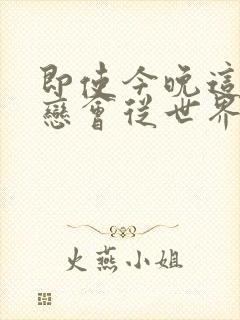 即使今晚這
戀會從世界
火燕小姐